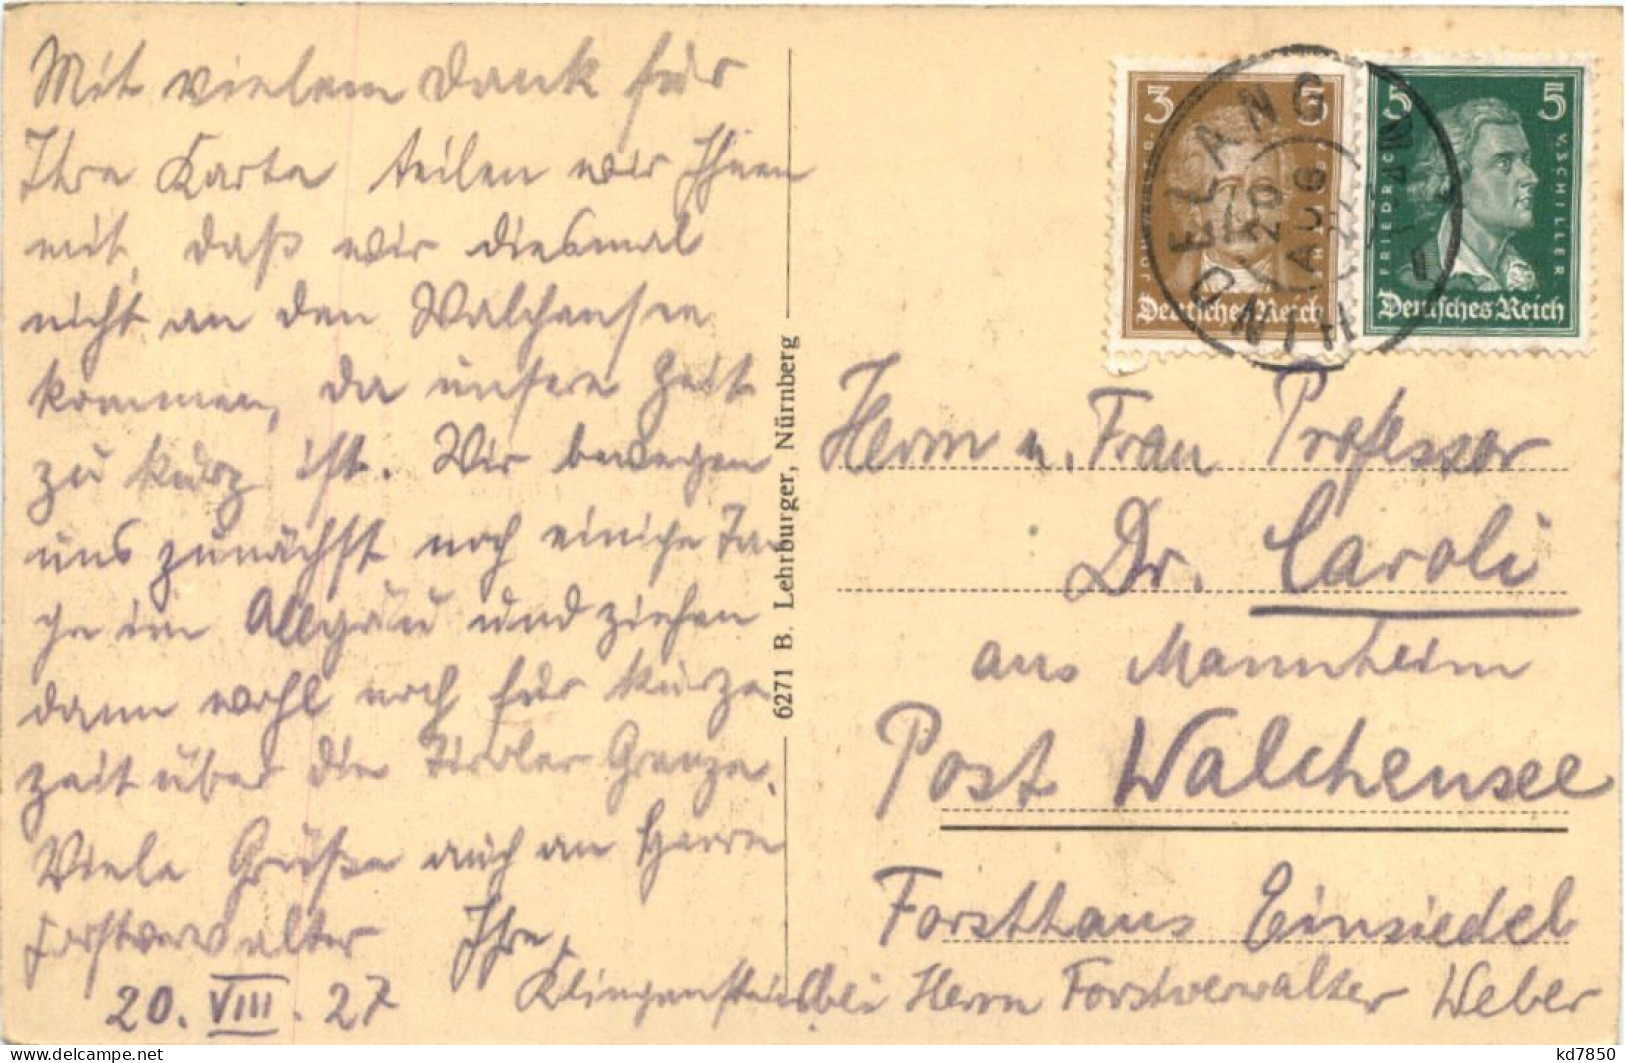 Mit vielem Dank für
Ihre Karte teilen wir Ihnen
mit, daß wir diesmal
nicht an den Walchensee
kommen, da unsere Zeit
zu kurz ist. Wir bewegen
uns zunächst noch einiche Ta-
ge im Allgäu und ziehen
dann wohl noch für kurze
Zeit über die Tiroler Grenze.
Viele Grüße auch an Herrn
Forstverwalter Ihre
20. VIII. 27
6271 B. Lehrburger, Nürnberg
3 3
JOH. WOLFG. GOETHE
Deutsches Reich
5 5
FRIEDRICH V. SCHILLER
Deutsches Reich
HINDELANG
20 AUG
Herrn u. Frau Professor
Dr. Caroli
aus Mannheim
Post Walchensee
Forsthaus Einsiedel
bei Herrn Forstverwalter Weber
https://www.delcampe.net
kd7850